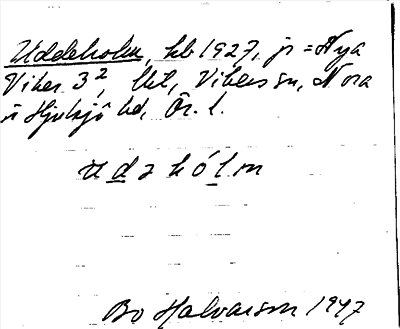 Uddeholm, hb 1927, jr = Nya
Viker 3², lht, Vikers sn, Nora
o Hjulsjö bd, Ör. l.
u d ə h ó l m
Bo Halvarson 1947